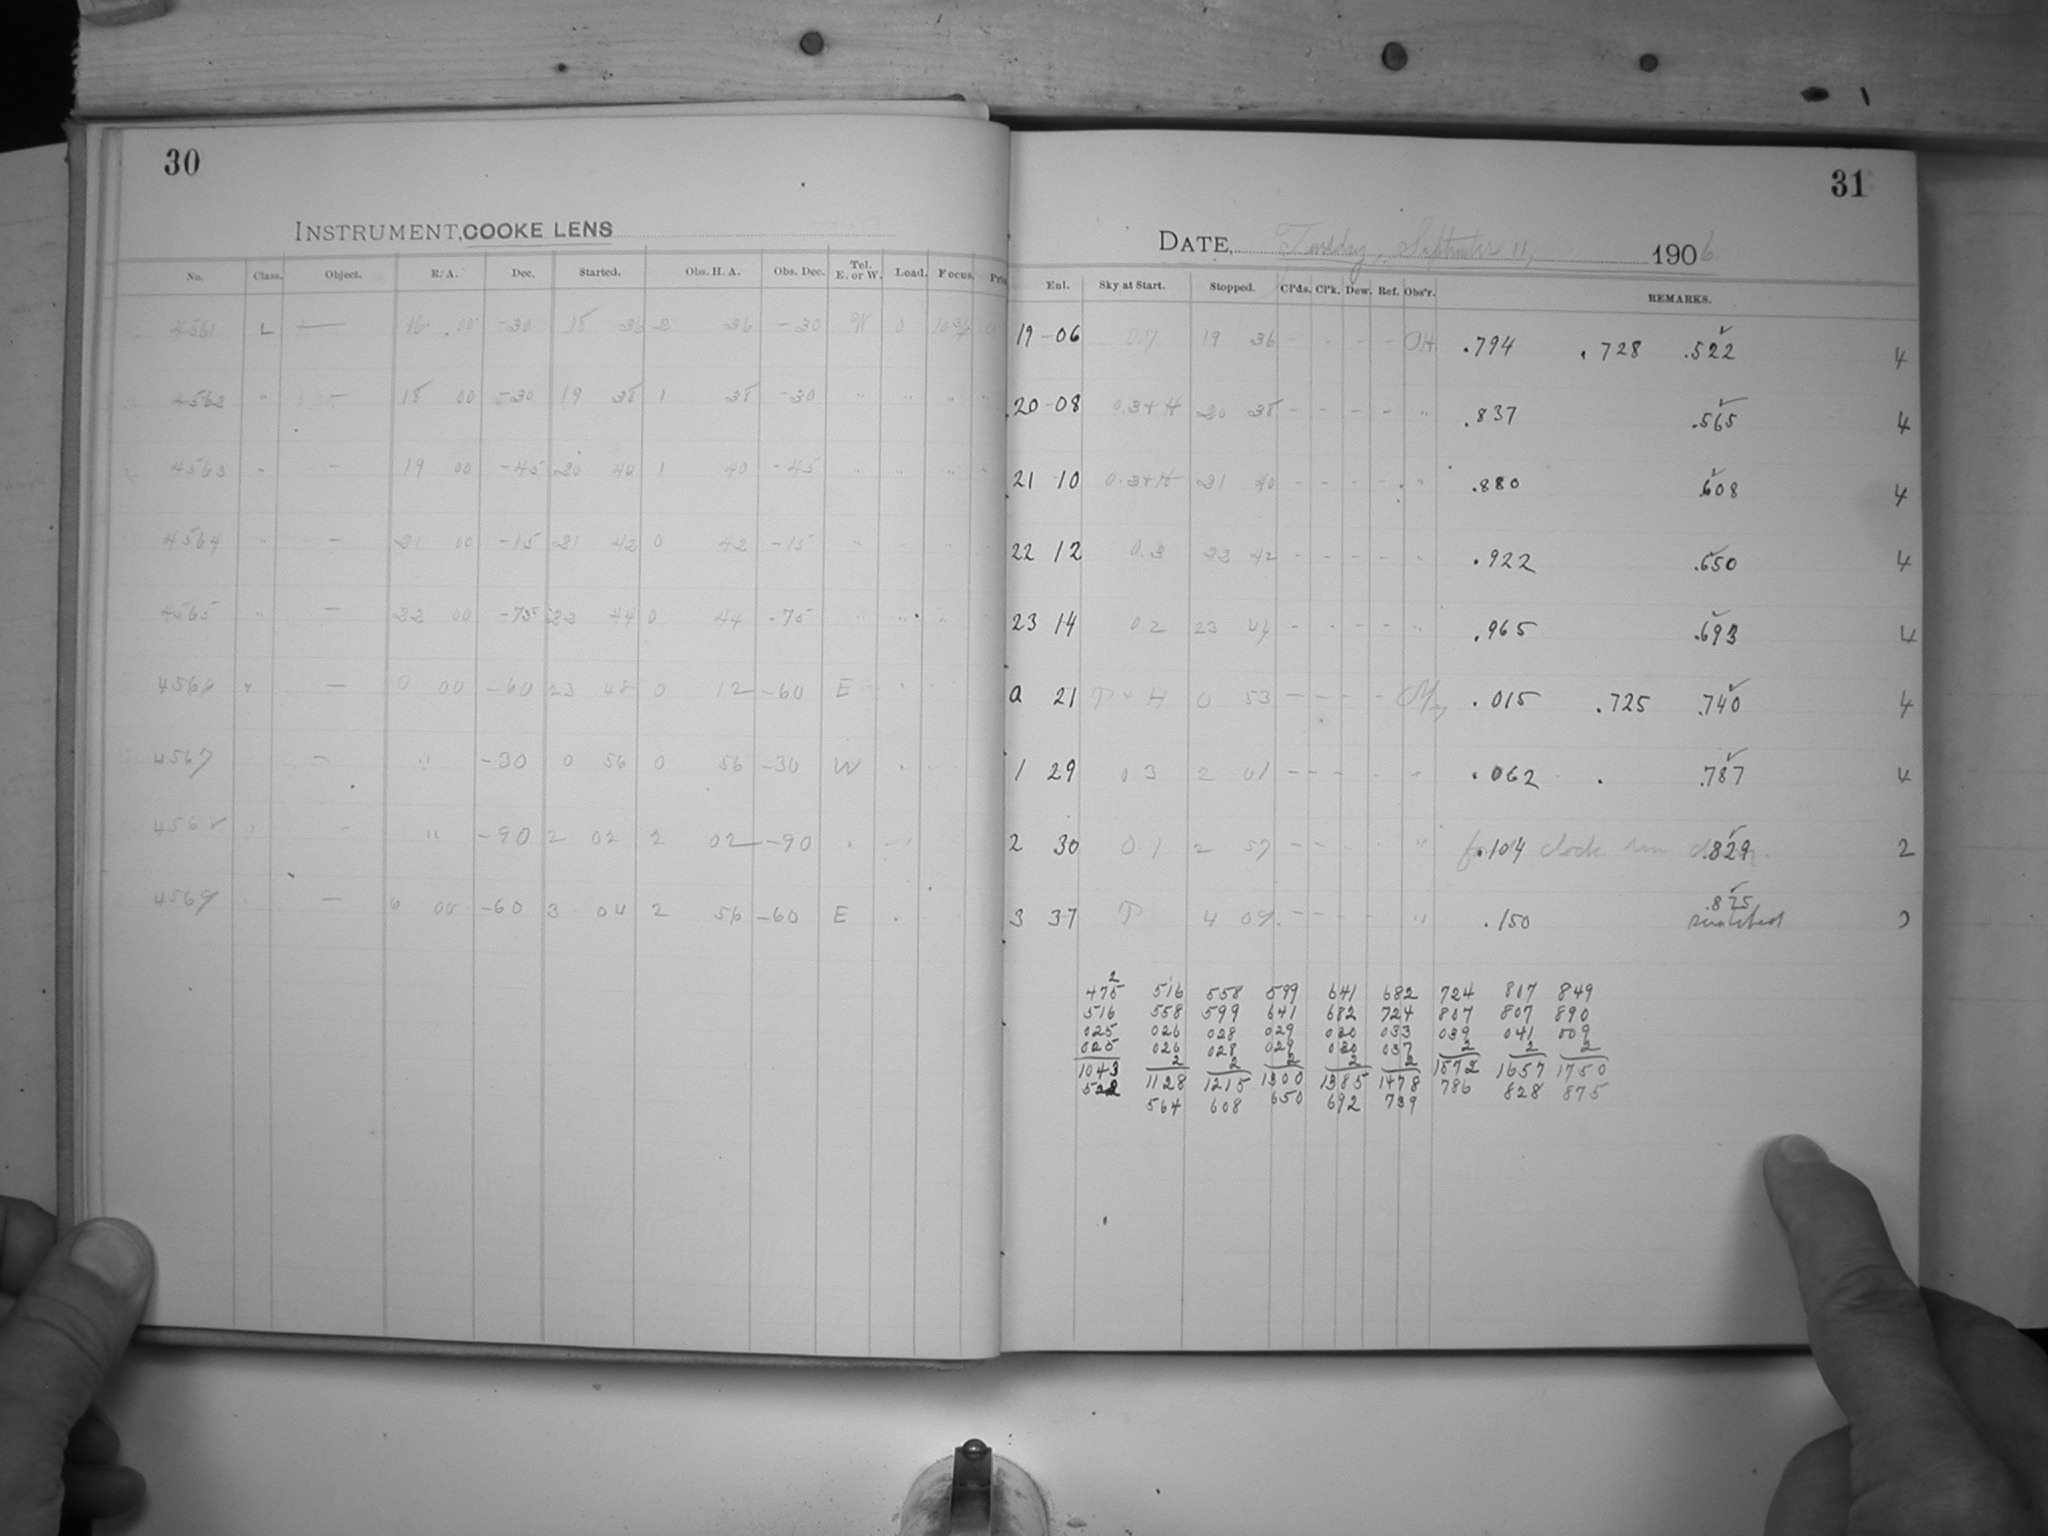 30
INSTRUMENT, COOKE LENS
No. Class. Object. R. A. Dec. Started. Obs. H. A. Obs. Dec. Tel. E. or W. Load. Focus.
4561 L — 16 00 -30 18 36 2 36 -30 W 0
4562 " — 18 00 -30 19 38 1 38 -30 " " " "
4563 " — 19 00 -45 20 40 1 40 -45 " " " "
4564 " — 21 00 -15 21 42 0 42 -15 "
4565 " — 22 00 -75 22 44 0 44 -75 " " "
4566 " — 0 00 -60 23 48 0 12 -60 E
4567 — " -30 0 56 0 56 -30 W
4568 - " -90 2 02 2 02 -90
4569 — 6 00 -60 3 04 2 56 -60 E
31
DATE, Tuesday, September 11, 1906
Enl. Sky at Start. Stopped. Cl'ds. Cl'k. Dew. Ref. Obs'r. REMARKS.
19-06 0.7 19 36 - - - - OH .794 .728 .522 4
20-08 0.3+H 20 38 - - - - " .837 .565 4
21 10 0.3+H 21 40 - - - - " .880 .608 4
22 12 0.3 22 42 - - - - " .922 .650 4
23 14 0.2 23 44 - - - - " .965 .693 4
0 21 T+H 0 53 - - - - .015 .725 .740 4
1 29 0.3 2 01 - - - - " .062 . .787 4
2 30 0.1 2 57 - - - - " .104 clock run .829 2
3 37 T 4 09 - - - - " .150 .875
2
475 516 558 599 641 682 724 807 849
516 558 599 641 682 724 807 807 890
025 026 028 029 030 033 039 041 009
025 026 028 029 030 037 2 2 2
1043 2 2 2 2 2 1572 1657 1750
522 1128 1215 1300 1385 1478 786 828 875
564 608 650 692 739